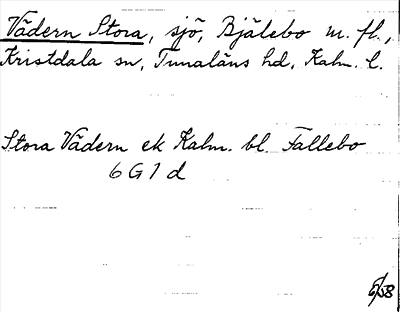 Vädern Stora, sjö, Bjälebo m. fl.,
Kristdala sn, Tunaläns hd, Kalm. l.
Stora Vädern ek Kalm. bl. Fallebo
6 G 1 d